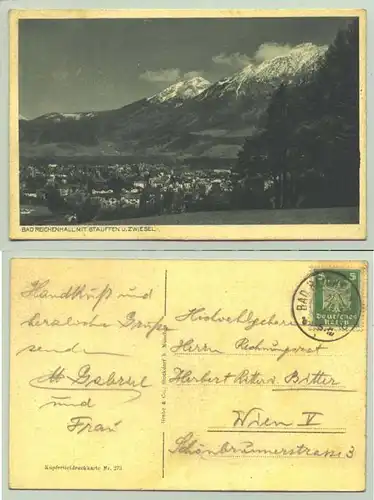 BAD REICHENHALL MIT STAUFFEN U. ZWIESEL.
Handkuß und
herzliche Grüße
sende
M Gabriel
und
Frau
Kupfertiefdruckkarte Nr. 275
BAD
5
Deutsches
Reich
Hochwohlgeboren
Herrn Rechnungsrat
Herbert Ritter v. Bitter
Wien V
Schönbrunnerstraße 3